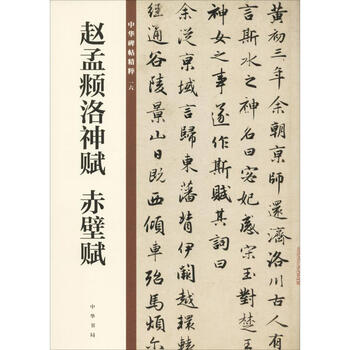 中华碑帖精粹 一六
赵孟𫖯洛神赋 赤壁赋
中华书局
黃初三年余朝京師還濟洛川古人有
言斯水之神名曰宓妃感宋玉對楚王
神女之事遂作斯賦其詞曰
余從京域言歸東藩背伊闕越轘轅
經通谷陵景山日既西傾車殆馬煩爾